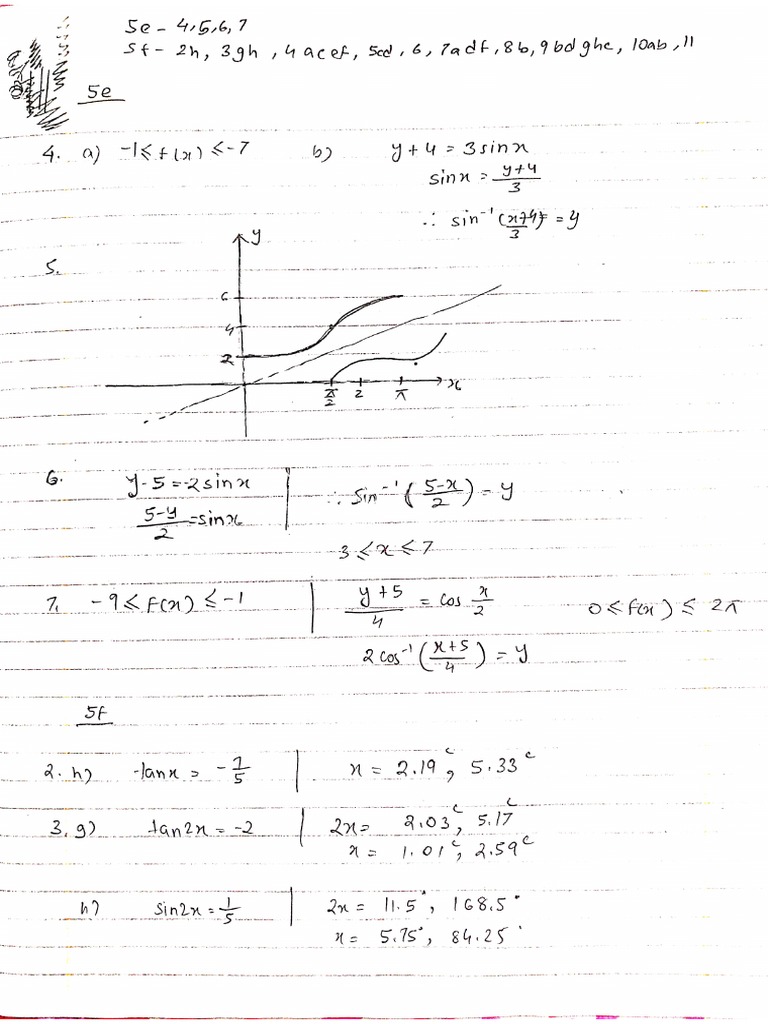 5e - 4,5,6,7
5f - 2h, 3gh, 4acef, 5cd, 6, 7adf, 8b, 9bdghc, 10ab, 11
5e
4. a) -1 ≤ f(x) ≤ -7 b) y + 4 = 3 sin x
sin x = (y+4)/3
∴ sin⁻¹((x+4)/3) = y
5.
y
6
4
2
π/2 2 π x
6. y - 5 = -2 sin x ∴ sin⁻¹((5-x)/2) = y
(5-y)/2 = sin x
3 ≤ x ≤ 7
7. -9 ≤ f(x) ≤ -1 (y+5)/4 = cos x/2 0 ≤ f(x) ≤ 2π
2 cos⁻¹((x+5)/4) = y
5f
2. h) tan x = -7/5 x = 2.19ᶜ, 5.33ᶜ
3. g) tan 2x = -2 2x = 2.03ᶜ, 5.17ᶜ
x = 1.01ᶜ, 2.59ᶜ
h) sin 2x = 1/5 2x = 11.5°, 168.5°
x = 5.75°, 84.25°